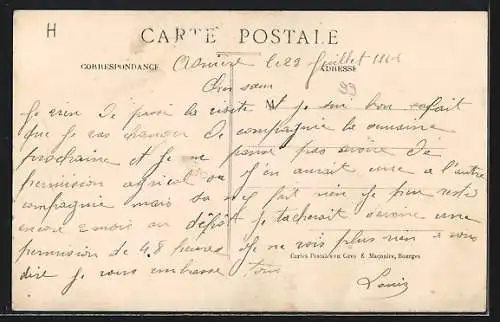 H
CARTE POSTALE
CORRESPONDANCE
ADRESSE
le 23 Juillet
93
Cher sœur
Je vien de passé la visite et je sui bon sa fait
que je vas changer de compagnie la semaine
prochaine et je ne pense pas avoir de
permission agricol j'en aurait une a l'autre
compagnie mais sa ne fait rien je peu resté
encore 2 mois au dépôt je tacherait d'avoir une
permission de 48 heures je ne vois plus rien a vous
dire je vous embrasse tous
Cartes Postales en Gros E. Maquaire, Bourges
Louis